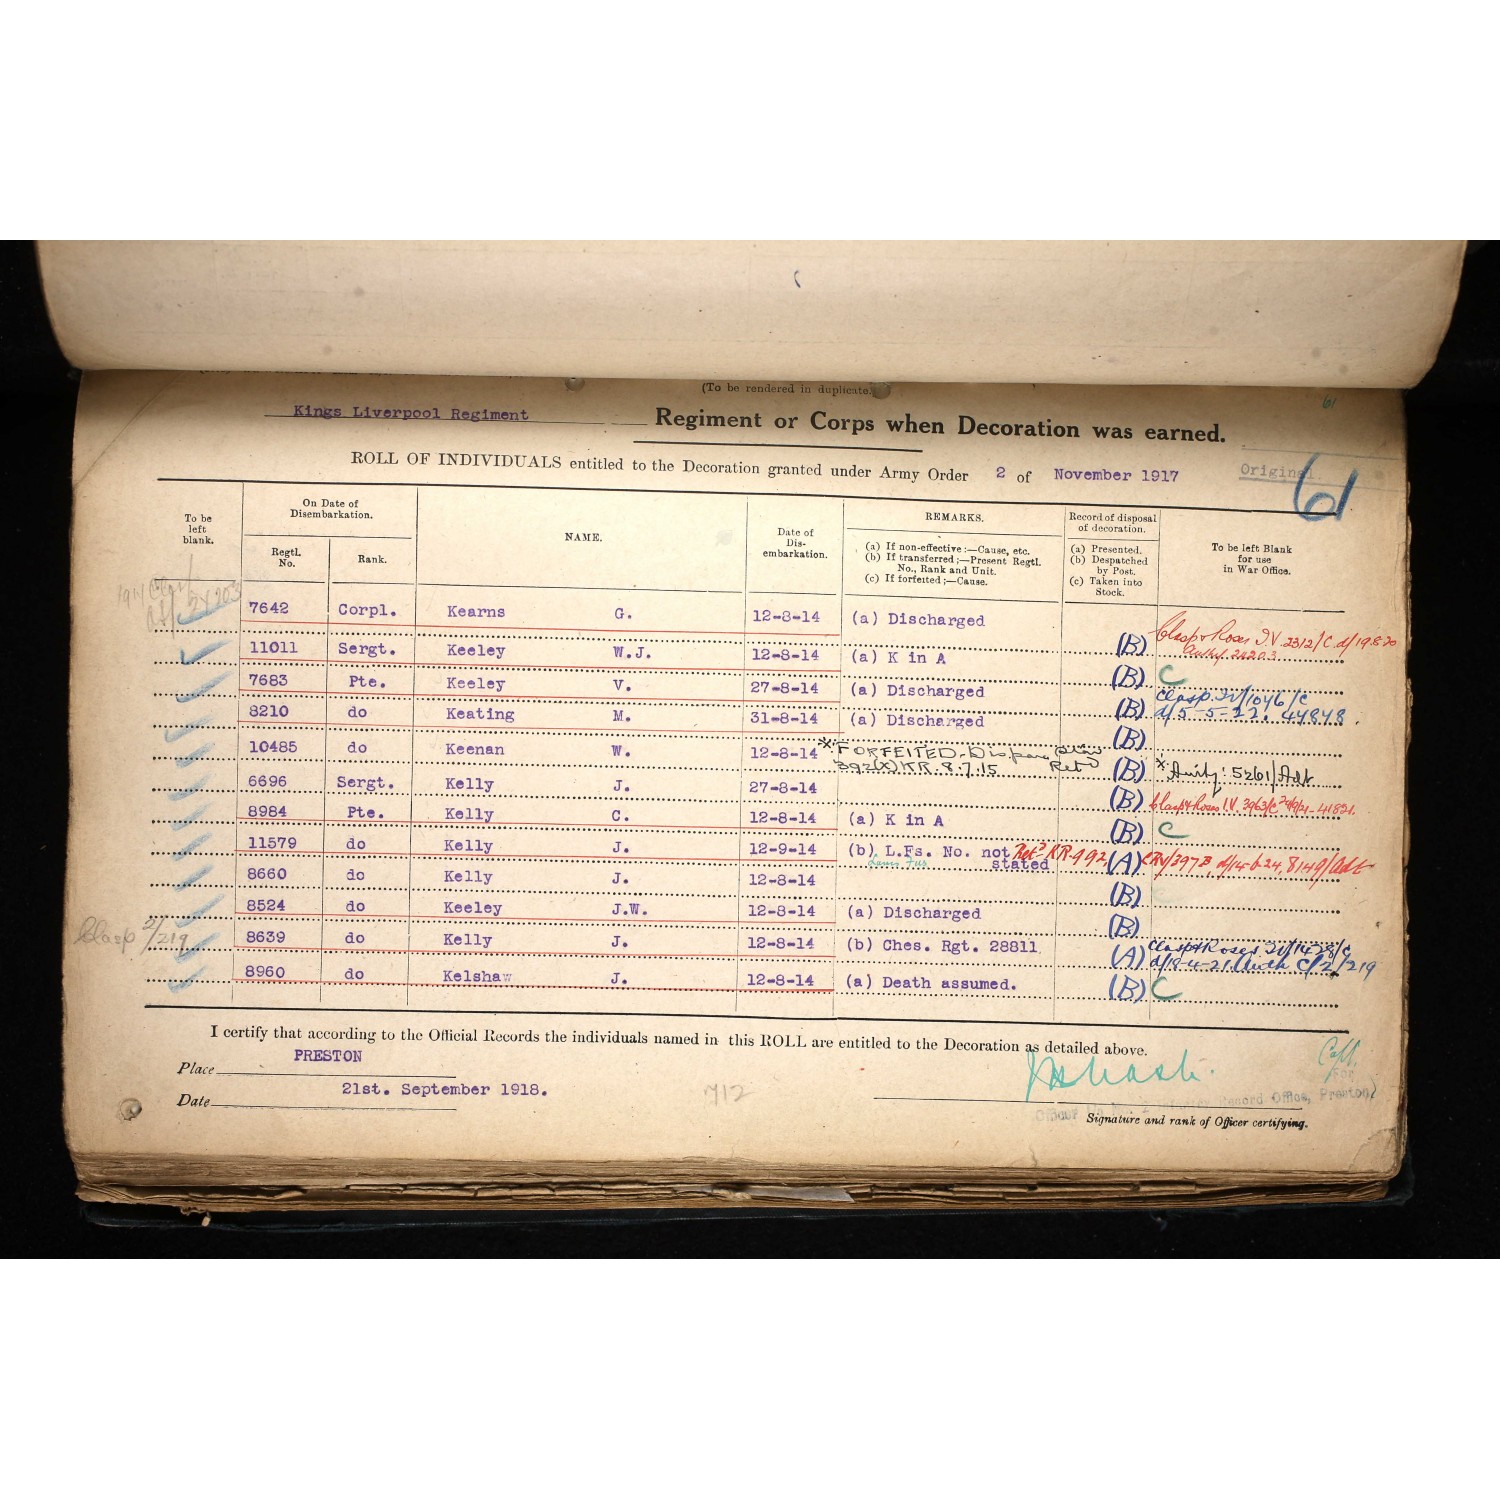 (To be rendered in duplicate.)
61
Kings Liverpool Regiment Regiment or Corps when Decoration was earned.
ROLL OF INDIVIDUALS entitled to the Decoration granted under Army Order 2 of November 1917 Original.
61
To be left blank.
On Date of Disembarkation.
Regtl. No.
Rank.
NAME.
Date of Dis-embarkation.
REMARKS.
(a) If non-effective:—Cause, etc.
(b) If transferred;—Present Regtl. No., Rank and Unit.
(c) If forfeited;—Cause.
Record of disposal of decoration.
(a) Presented.
(b) Despatched by Post.
(c) Taken into Stock.
To be left Blank for use in War Office.
7642 Corpl. Kearns G. 12-8-14 (a) Discharged (B) Clasp & Roses I.V. 2312/C d/19.8.20
24203
11011 Sergt. Keeley W.J. 12-8-14 (a) K in A (B) C
7683 Pte. Keeley V. 27-8-14 (a) Discharged (B) Clasp IV/1046/C
d/5-5-22. 44848.
8210 do Keating M. 31-8-14 (a) Discharged (B)
10485 do Keenan W. 12-8-14 * FORFEITED
392(X) KR. 8.7.15 (B) * Auth: 5261/Adt
6696 Sergt. Kelly J. 27-8-14 (B) Clasp & Roses I.V. 3963/C 41821.
8984 Pte. Kelly C. 12-8-14 (a) K in A (B) C
11579 do Kelly J. 12-9-14 (b) L.Fs. No. not stated Ret KR.992, (A) 8149/Adt
Lanc Fus
8660 do Kelly J. 12-8-14 (B)
8524 do Keeley J.W. 12-8-14 (a) Discharged (B)
Clasp 2/219 8639 do Kelly J. 12-8-14 (b) Ches. Rgt. 28811 (A) Clasp & Roses IV/1428/C
d/18-4-21 Auth C/2/219
8960 do Kelshaw J. 12-8-14 (a) Death assumed. (B) C
I certify that according to the Official Records the individuals named in this ROLL are entitled to the Decoration as detailed above.
Place PRESTON
Date 21st. September 1918.
712
Record Office, Preston
Signature and rank of Officer certifying.